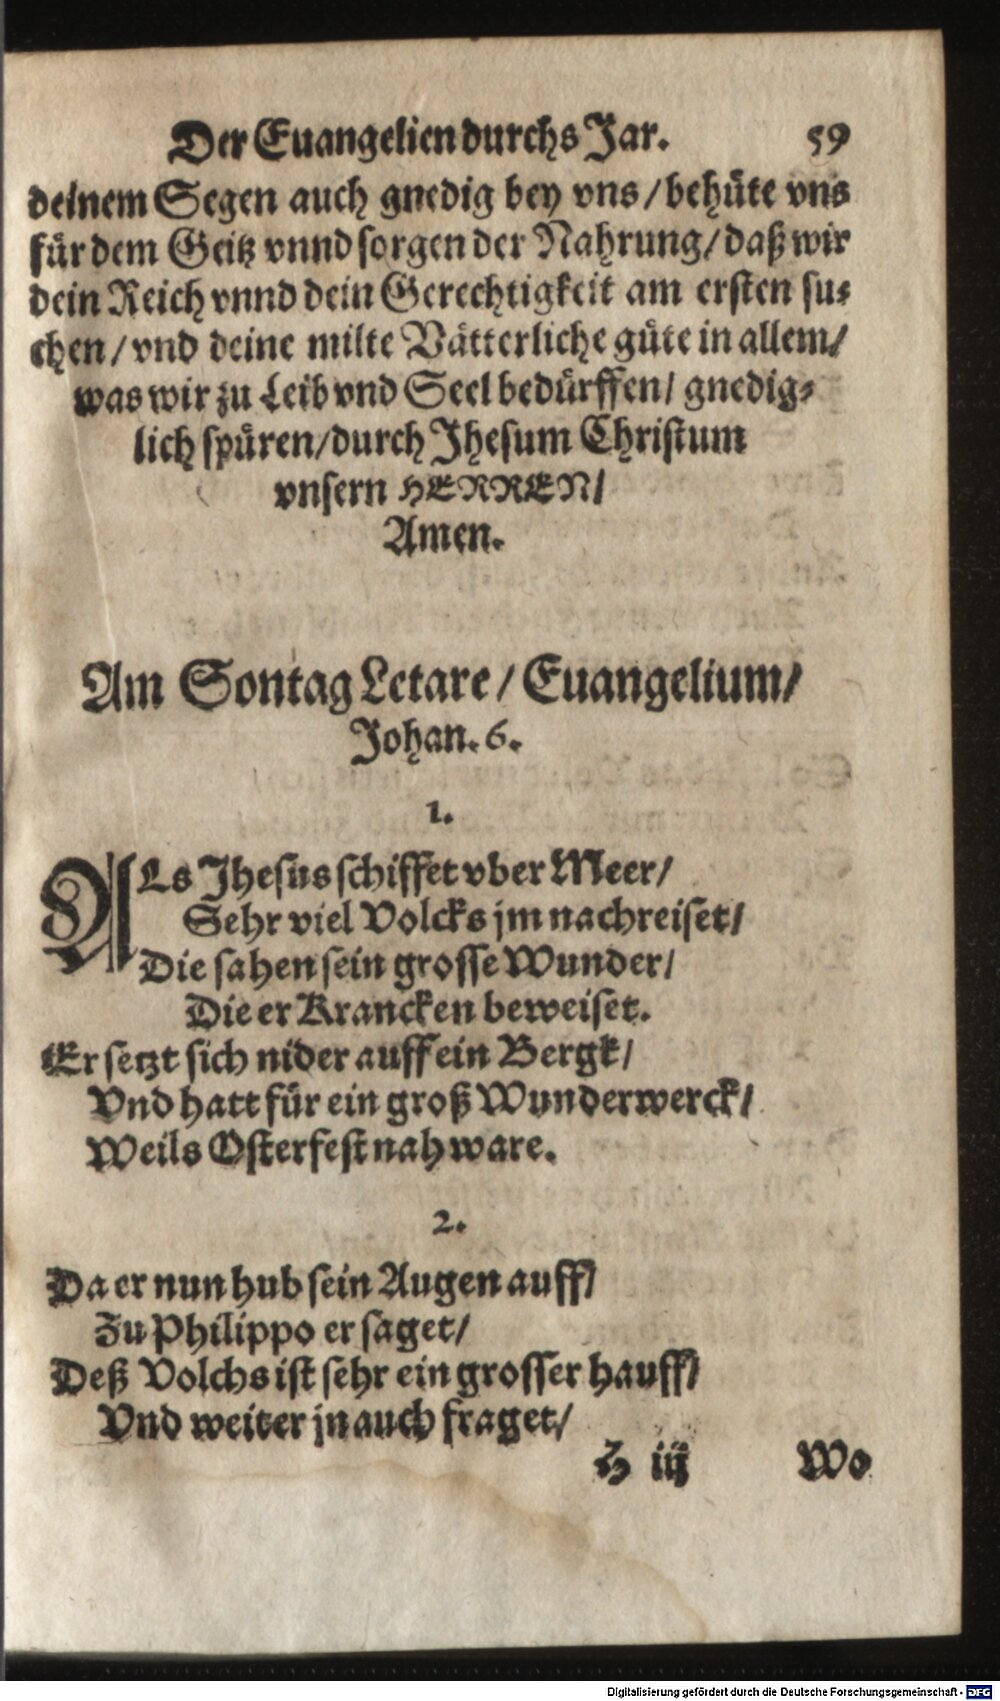 Der Euangelien durchs Jar. 59
deinem Segen auch gnedig bey vns / behüte vns
für dem Geitz vnnd sorgen der Nahrung / daß wir
dein Reich vnnd dein Gerechtigkeit am ersten su-
chen / vnd deine milte Vätterliche güte in allem /
was wir zu Leib vnd Seel bedürffen / gnedig-
lich spüren / durch Jhesum Christum
vnsern HERREN /
Amen.
Am Sontag Letare / Euangelium /
Johan. 6.
1.
ALs Jhesus schiffet vber Meer /
Sehr viel Volcks jm nachreiset /
Die sahen sein grosse Wunder /
Die er Krancken beweiset.
Er setzt sich nider auff ein Bergk /
Vnd hatt für ein groß Wunderwerck /
Weils Osterfest nah ware.
2.
Da er nun hub sein Augen auff /
Zu Philippo er saget /
Deß Volchs ist sehr ein grosser hauff /
Vnd weiter jn auch fraget /
H iij Wo
Digitalisierung gefördert durch die Deutsche Forschungsgemeinschaft - DFG